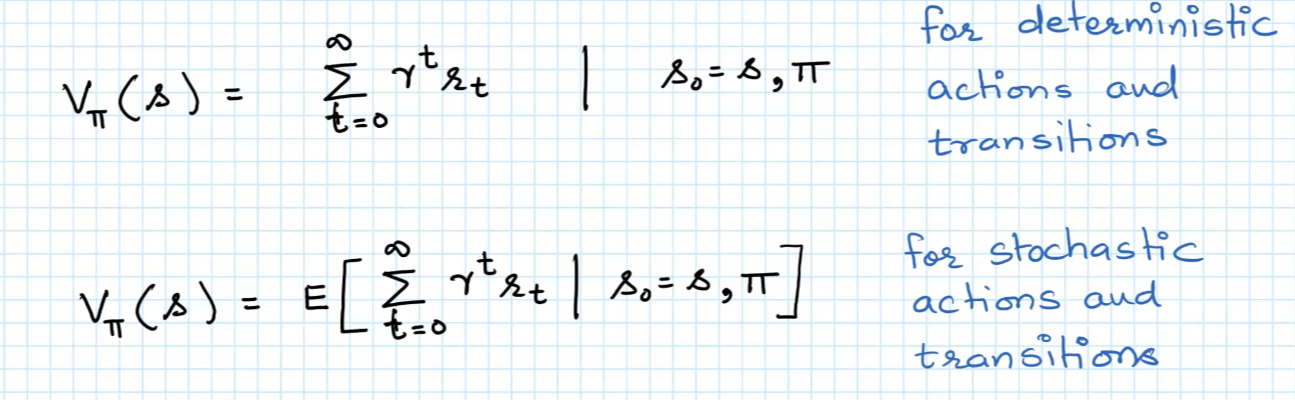 V_π(s) = ∑_{t=0}^{∞} γ^t r_t | s_0 = s, π
for deterministic
actions and
transitions
V_π(s) = E[∑_{t=0}^{∞} γ^t r_t | s_0 = s, π]
for stochastic
actions and
transitions